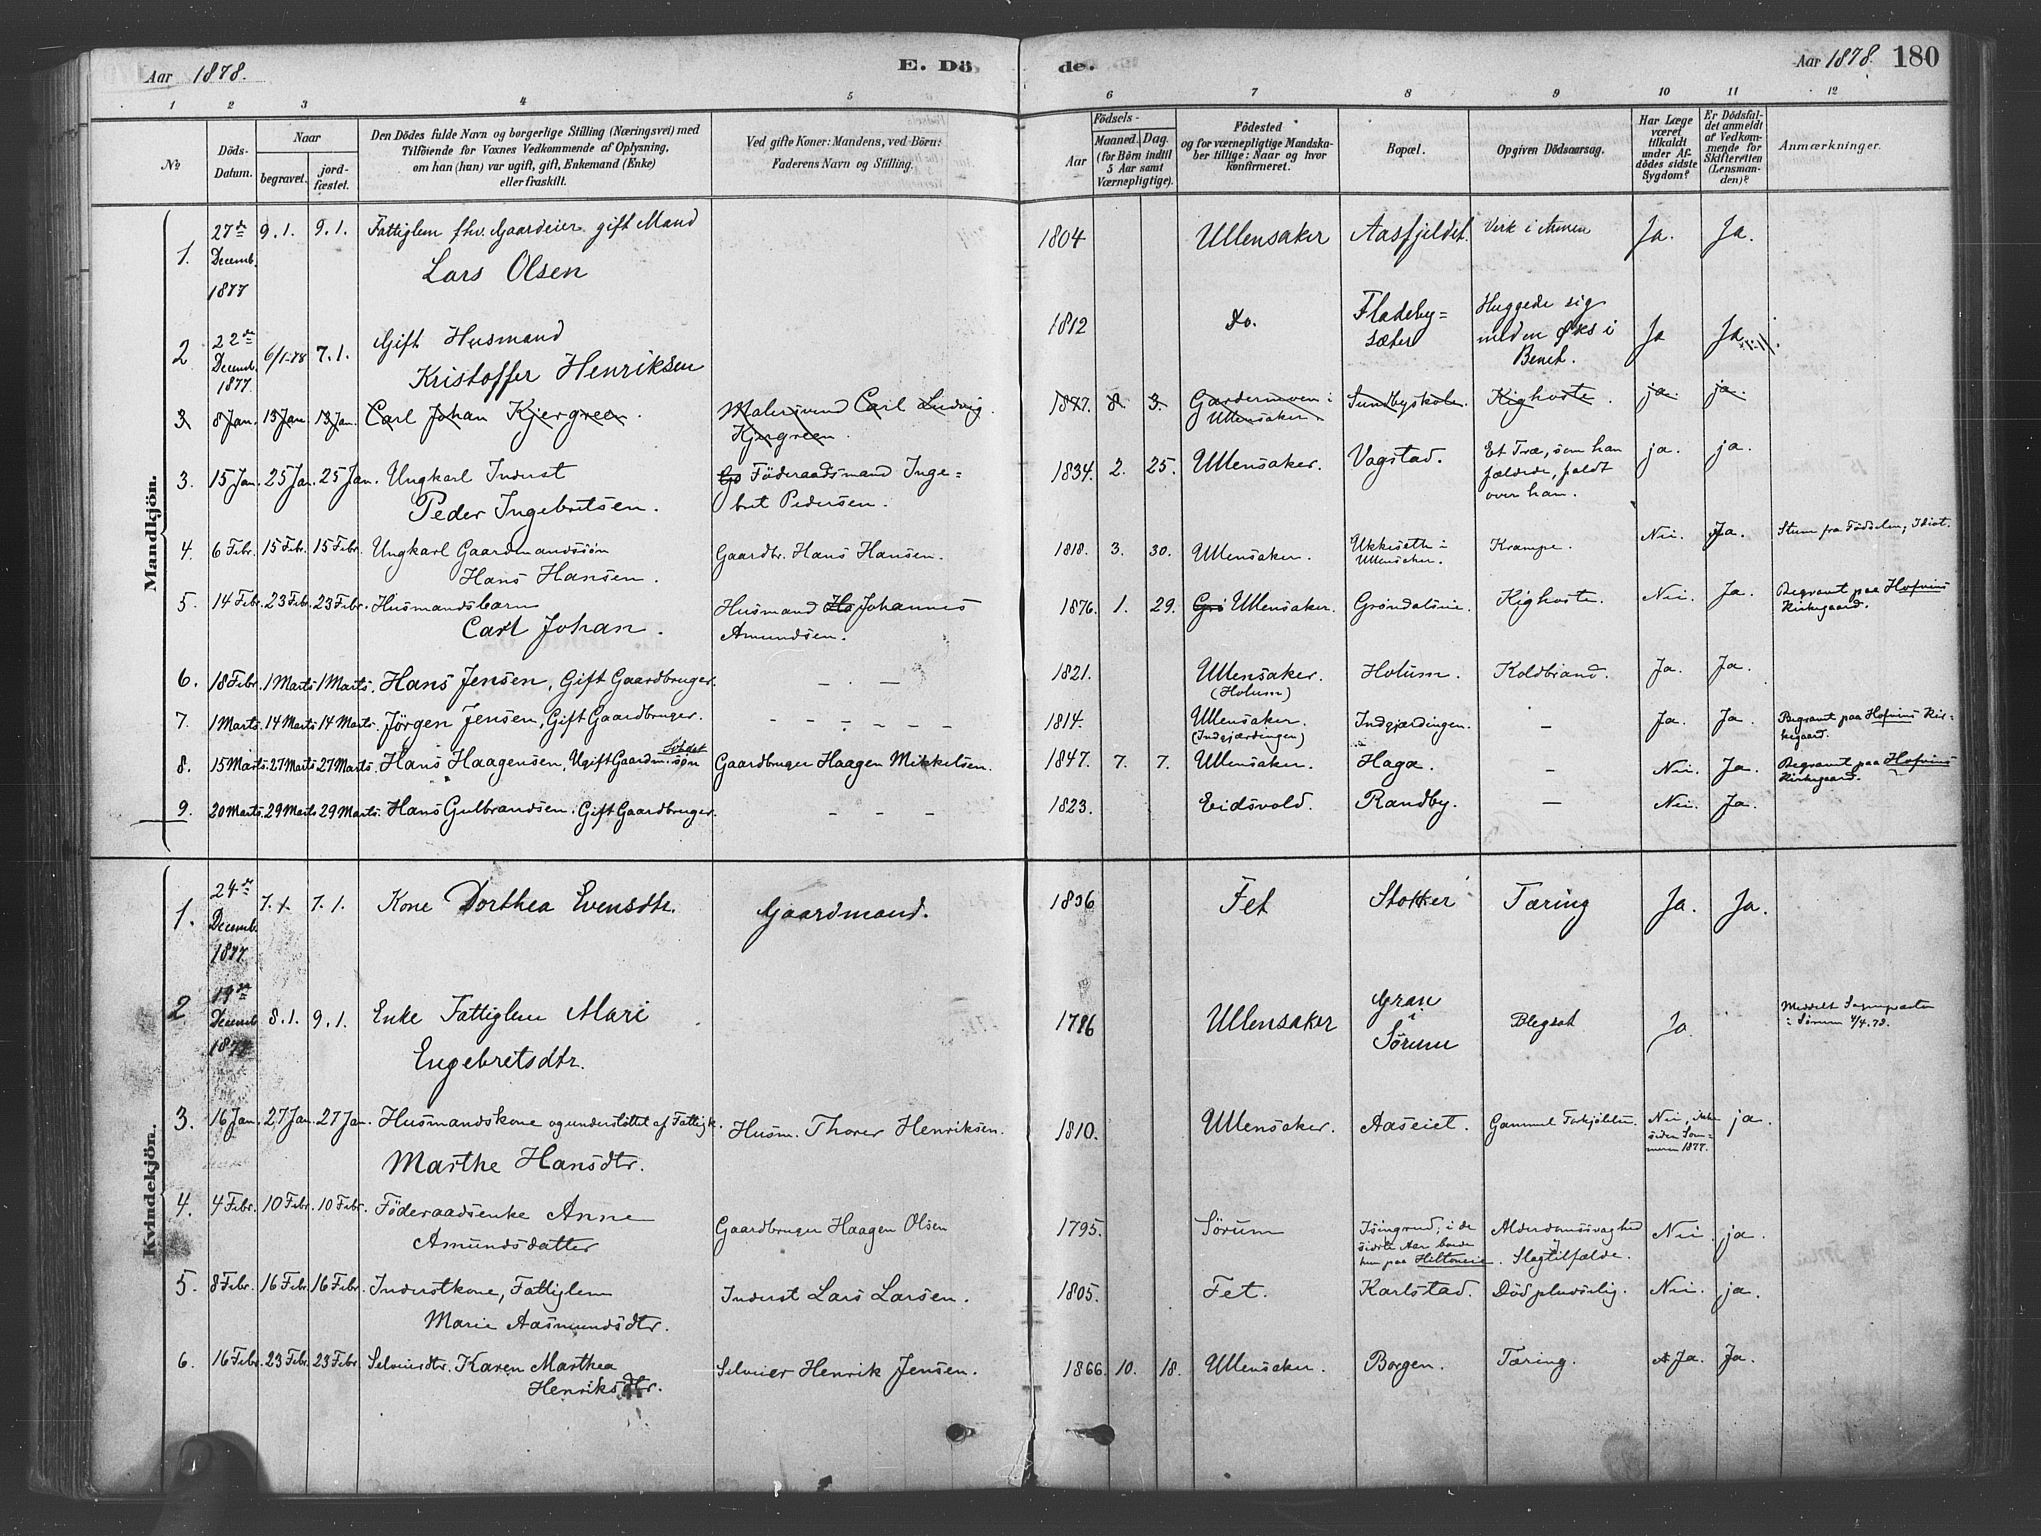 Aar 1878. E. Dö
de. Aar 1878. 180
1 2 3 4 5 6 7 8 9 10 11 12
No Döds-Datum. Naar begravet. jord-fæstet.
Den Dödes fulde Navn og borgerlige Stilling (Næringsvei) med
Tilföiende for Voxnes Vedkommende af Oplysning,
om han (hun) var ugift, gift, Enkemand (Enke)
eller fraskilt.
Ved gifte Koner: Mandens, ved Börn:
Faderens Navn og Stilling.
Födsels-
Aar Maaned. Dag.
(for Börn indtil
5 Aar samt
Værnepligtige).
Födested
og for værnepligtige Mandska-
ber tillige: Naar og hvor
konfirmeret.
Bopæl.
Opgiven Dödsaarsag.
Har Læge
været
tilkaldt
under Af-
dödes sidste
Sygdom?
Er Dödsfal-
det anmeldt
af Vedkom-
mende for
Skifteretten
(Lensman-
den)?
Anmærkninger.
Mandkjön.
1. 27de Decemb. 1877 9.1. 9.1. Fattiglem fhv. Gaardeier gift Mand
Lars Olsen
1804 Ullensaker Aasfjeldet. Verk i Armen Ja. Ja.
2 22de Decemb. 1877. 6/1-78 7.1. Gift Husmand
Kristoffer Henriksen
1812 Do. Fladeby=
sæter Huggede sig
med en Øks i
Benet. Ja Ja
3 8 Jan. 13 Jan. 13 Jan. Carl Johan Kjergreen. Malersvend Carl Ludvig
Kjergreen.
1877. 8 3. Gardermoen i
Ullensaker. Sundbyskole. Kighoste. ja. ja.
3. 15 Jan. 25 Jan. 25 Jan. Ungkarl Inderst
Peder Ingebretsen. Föderaadsmand Inge=
bret Pedersen.
1834. 2. 25. Ullensaker. Vagstad. Et Træ, som han
fældede, faldt
over ham. ja. ja.
4. 6 Febr. 15 Febr. 15 Febr. Ungkarl Gaardmandssön
Hans Hansen. Gaardbr. Hans Hansen.
1818. 3. 30. Ullensaker. Ukkiseth i
Ullensaker. Krampe. Nei. Ja. Stum fra Födselen, Idiot.
5. 14 Febr. 23 Febr. 23 Febr. Husmandsbarn
Carl Johan. Husmand Ha Johannes
Amundsen.
1876. 1. 29. Grö Ullensaker. Gröndalseie. Kighoste. Nei. Ja. Begravet paa Hofvins
Kirkegaard.
6. 18 Febr. 1 Marts 1 Marts. Hans Jensen, Gift Gaardbruger. — . —
1821. Ullensaker.
(Holum) Holum. Koldbrand. Ja. Ja.
7. 1 Marts. 14 Marts 14 Marts. Jörgen Jensen, Gift Gaardbruger. — — — — — —
1814. Ullensaker.
(Indgjærdingen) Indgjærdingen. — Ja. Ja. Begravet paa Hofvins Kir-
kegaard.
8. 15 Marts. 27 Marts 27 Marts. Hans Haagensen, Ugift Gaardm.sön Gaardbruger Haagen Mikkelsen.
1847. 7. 7. Ullensaker. Haga. — Nei. Ja. Begravet paa Hofvins
Kirkegaard.
9. 20 Marts. 29 Marts 29 Marts. Hans Gulbrandsen. Gift Gaardbruger. — — —
1823. Eidsvold. Randby. — Nei. Ja.
Kvindekjön.
1. 24de Decemb. 1877. 7.1 7.1. Kone Dorthea Evensdtr. Gaardmand.
1836 Fet Stokker Tæring Ja. Ja.
2 19de Decemb. 1877 8.1. 9.1. Enke Fattiglem Mari
Engebretsdtr.
1786 Ullensaker Gran
i
Sörum Blegsot Ja Meddelt Sognepræsten
i Sörum 4/4.78.
3. 16 Jan. 27 Jan. 27 Jan. Husmandskone og understöttet af Fattigk.
Marthe Hansdtr. Husm. Thorer Henriksen.
1810. Ullensaker. Aaseiet. Gammel Forkjölelse. Nei, ikke
siden Som=
meren 1877. ja.
4. 4 Febr. 10 Febr. 10 Febr. Föderaadsenke Anne
Amundsdatter Gaardbruger Haagen Olsen
1795. Sörum Isingrud; i de
sidste Aar boede
hun paa Hiltoneie. Alderdomssvaghed
Slagtilfælde. Nei. ja.
5. 8 Febr. 16 Febr. 16 Febr. Inderstkone, Fattiglem
Marie Aasmundsdtr. Inderst Lars Larsen.
1805. Fet. Karlstad. Död pludselig. Nei. ja.
6. 16 Febr. 23 Febr. 23 Febr. Selveierdtr. Karen Marthea
Henriksdtr. Selveier Henrik Jensen.
1866. 10. 18. Ullensaker. Borgen. Tæring. Ja. Ja.